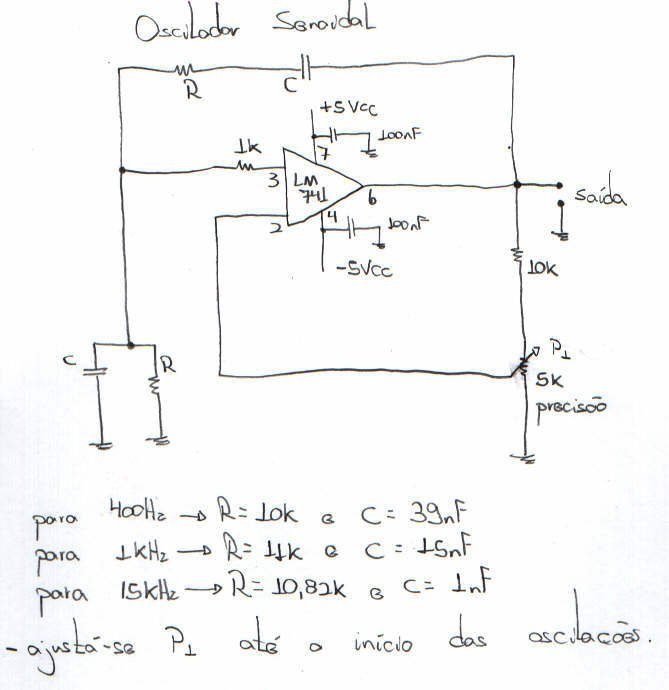 Oscilador Senoidal
R
C
+5Vcc
100nF
1k
7
3
LM
741
6
Saída
2
4
100nF
-5Vcc
10k
P1
5k
precisão
C
R
para 400Hz → R= 10k e C= 39nF
para 1kHz → R= 11k e C= 15nF
para 15kHz → R= 10,82k e C= 1nF
- ajustá-se P1 até o início das oscilações.